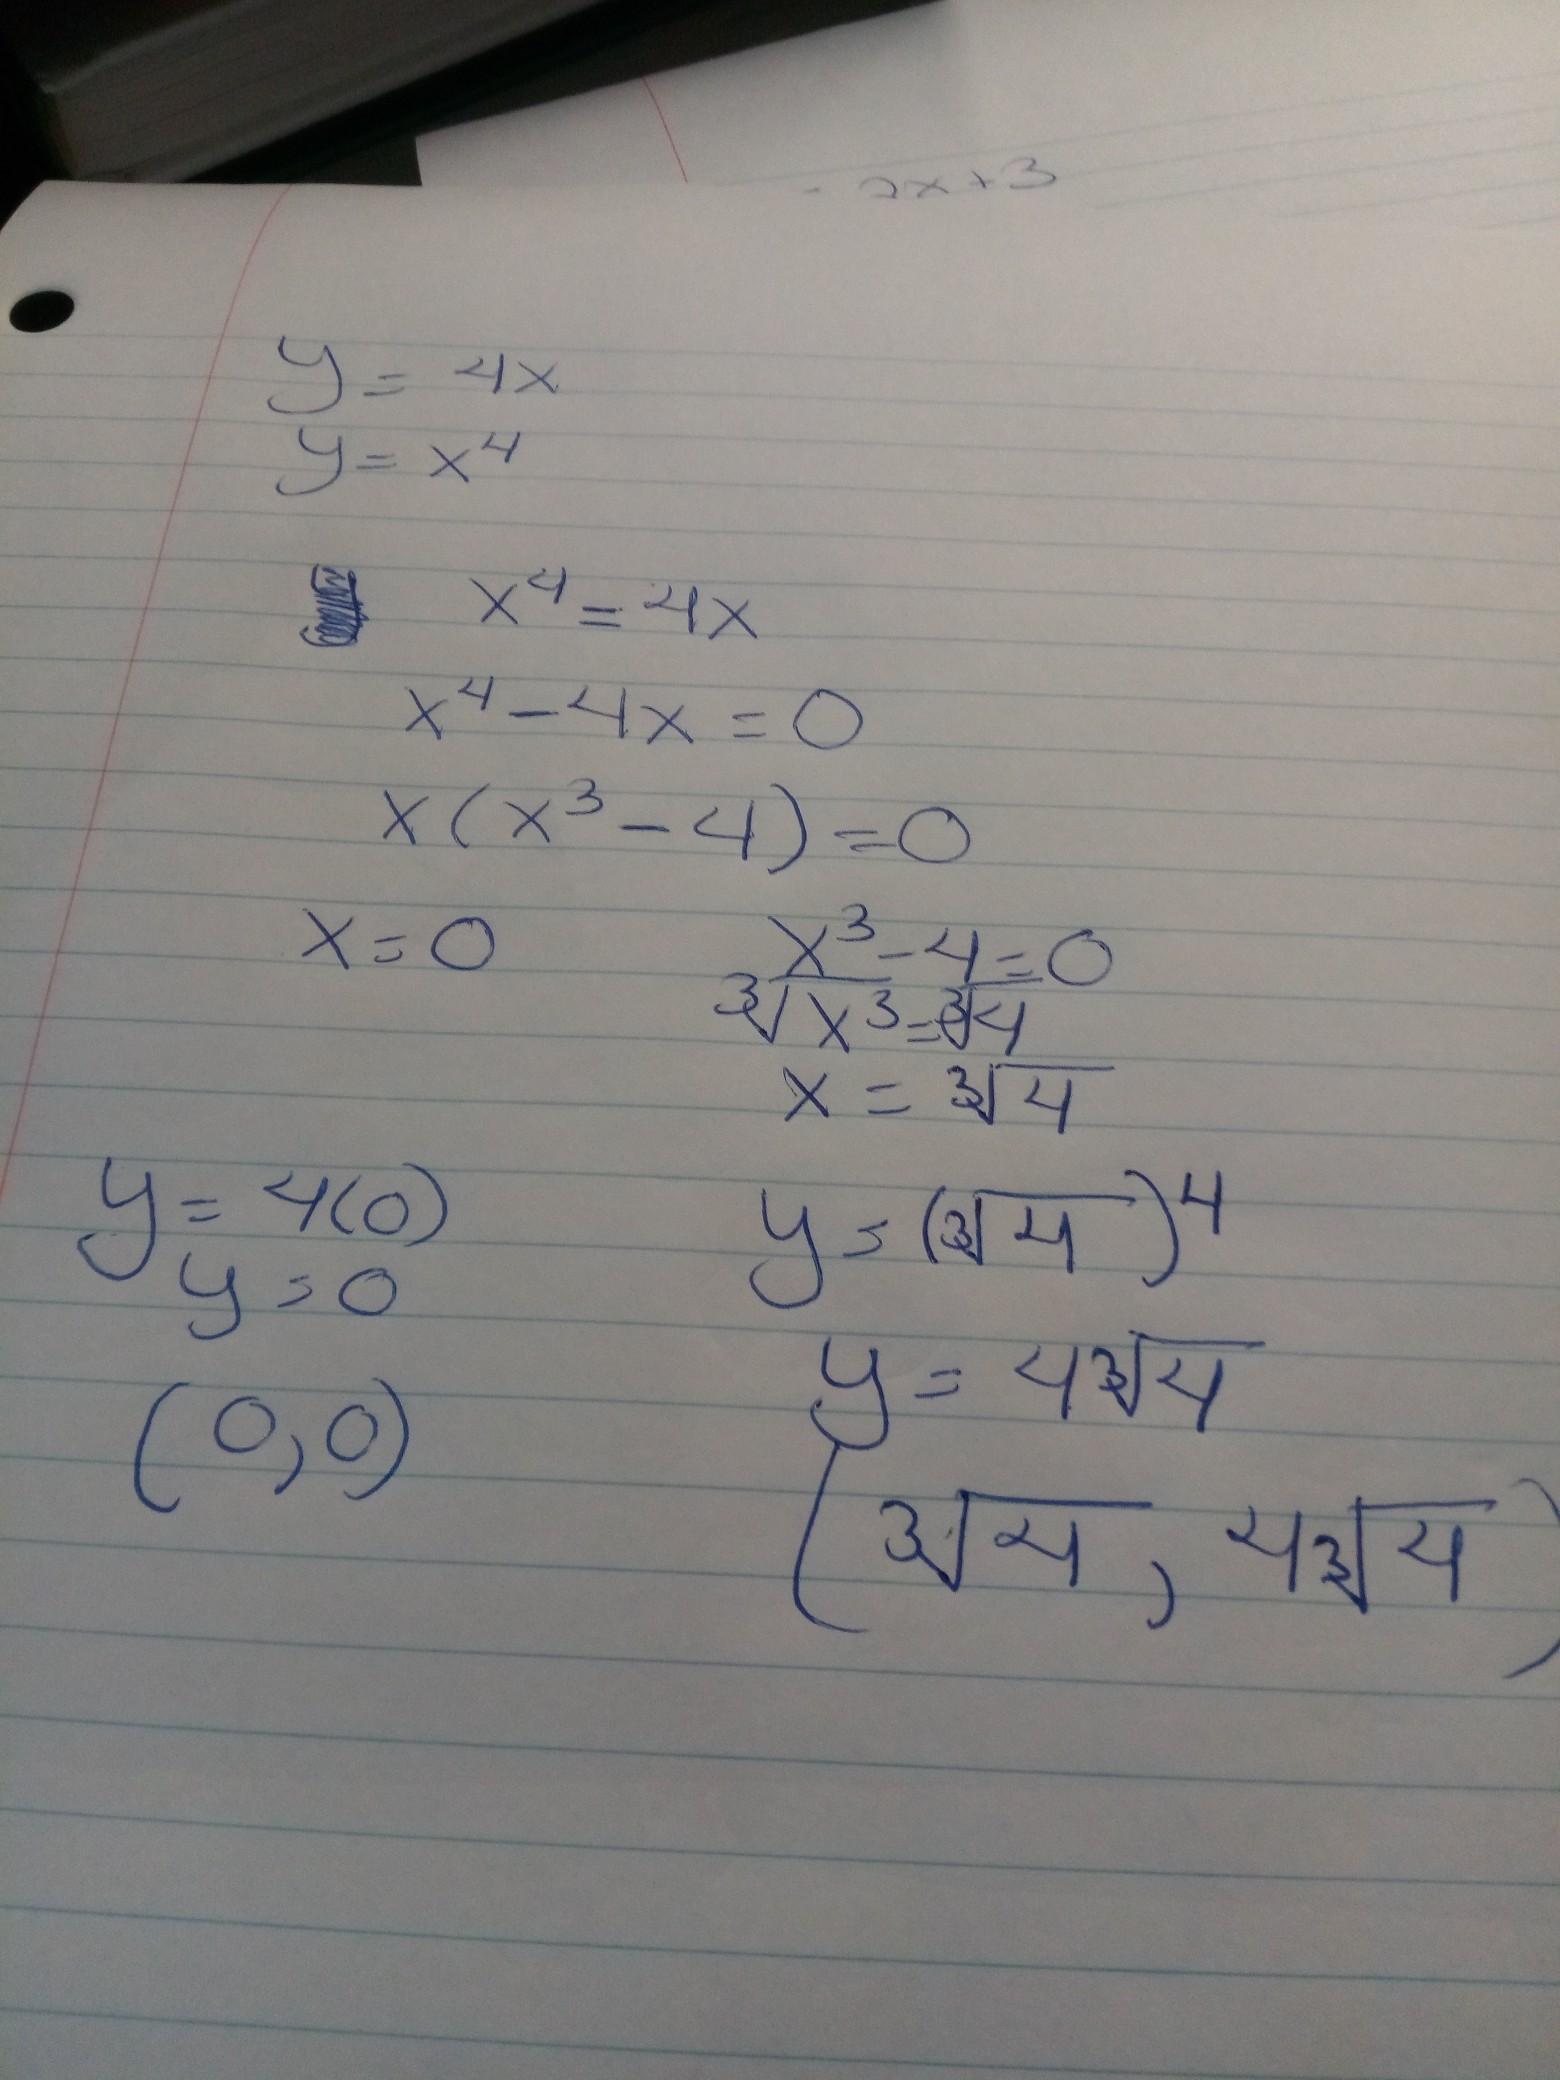 - 2x+3
y = 4x
y = x⁴
x⁴ = 4x
x⁴ - 4x = 0
x(x³ - 4) = 0
x = 0
x³ - 4 = 0
∛x³ = ∛4
x = ∛4
y = 4(0)
y = 0
(0,0)
y = (∛4)⁴
y = 4∛4
(∛4, 4∛4)